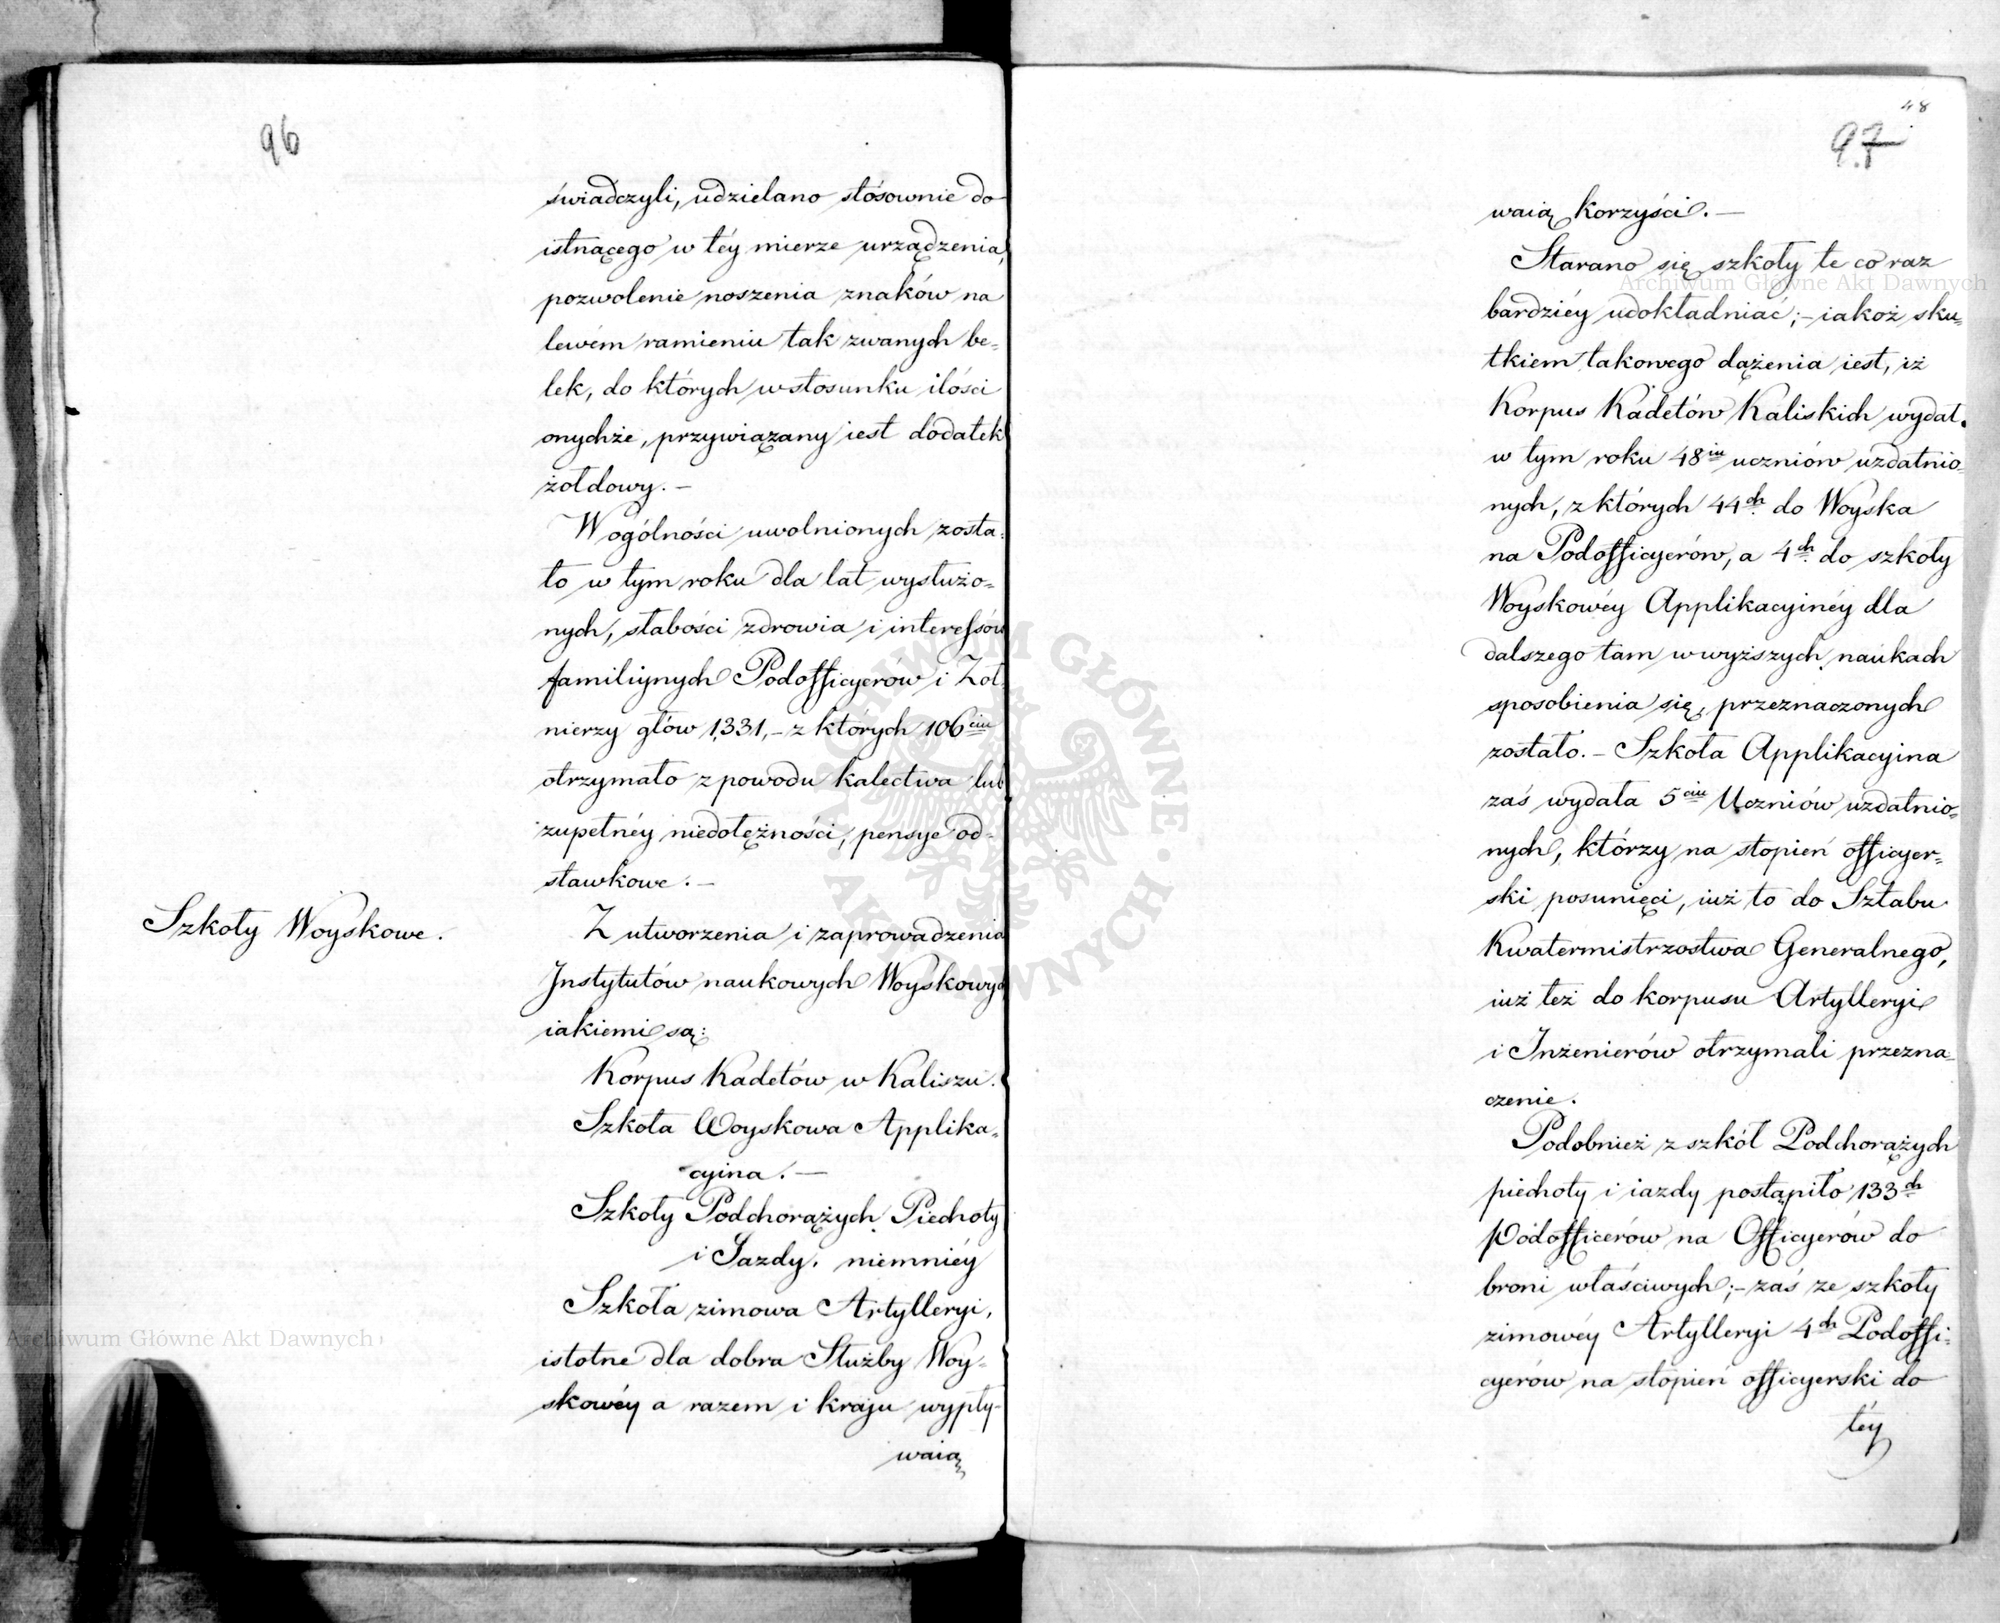 96
świadczyli, udzielano stósownie do
istnącego w téy mierze urządzenia,
pozwolenie noszenia znaków na
lewém ramieniu tak zwanych be=
lek, do których w stosunku ilości
onychże, przywiązany iest dodatek
żołdowy. –
W ogólności uwolnionych zosta=
ło w tym roku dla lat wysłużo=
nych, słabości zdrowia i interessów
familiynych Podofficyerów i Żoł=
nierzy głów 1,331, – z których 106ciu
otrzymało z powodu kalectwa lub
zupełnéy niedołężności, pensye od=
stawkowe. –
Szkoły Woyskowe.
Z utworzenia i zaprowadzenia
Instytutów naukowych Woyskowych
iakiemi są:
Korpus Kadetów w Kaliszu.
Szkoła Woyskowa Applika=
cyina. –
Szkoły Podchorążych Piechoty
i Jazdy, niemniéy
Szkoła zimowa Artylleryi,
istotne dla dobra Służby Woy=
skowéy a razem i kraju wypły=
waią
48
97
waią korzyści. –
Starano się szkoły te co raz
bardziéy udokładniać; – iakoż sku=
tkiem takowego dążenia iest, iż
Korpus Kadetów Kaliskich wydał
w tym roku 48iu uczniów uzdatnio=
nych, z których 44ch do Woyska
na Podofficyerów, a 4ch do szkoły
Woyskowéy Applikacyinéy dla
dalszego tam w wyższych naukach
sposobienia się, przeznaczonych
zostało. – Szkoła Applikacyina
zaś wydała 5ciu Uczniów uzdatnio=
nych, którzy na stopień officyer=
ski posunięci, iuż to do Sztabu
Kwatermistrzostwa Generalnego,
iuż też do korpusu Artylleryi
i Inżenierów otrzymali przezna=
czenie.
Podobnież z szkół Podchorążych
piechoty i iazdy postąpiło 133ch
Podofficerów na Officyerów do
broni właściwych; – zaś ze szkoły
zimowéy Artylleryi 4ch Podoffi=
cyerów na stopień officyerski do
téy
Archiwum Główne Akt Dawnych
Archiwum Główne Akt Dawnych
ARCHIWUM GŁÓWNE · AKT DAWNYCH ·